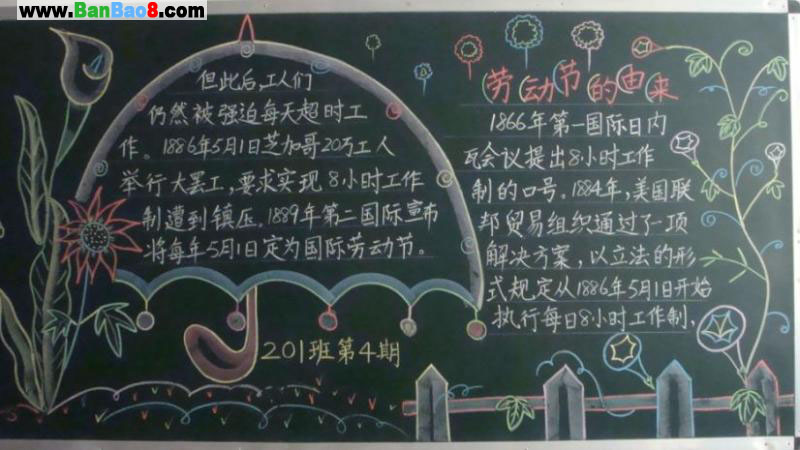 www.BanBao8.com
劳动节的由来
1866年第一国际日内
瓦会议提出8小时工作
制的口号。1884年,美国联
邦贸易组织通过了一项
解决方案,以立法的形
式规定从1886年5月1日开始
执行每日8小时工作制,
但此后,工人们
仍然被强迫每天超时工
作。1886年5月1日芝加哥20万工人
举行大罢工,要求实现8小时工作
制遭到镇压。1889年第二国际宣布
将每年5月1日定为国际劳动节。
201班第4期